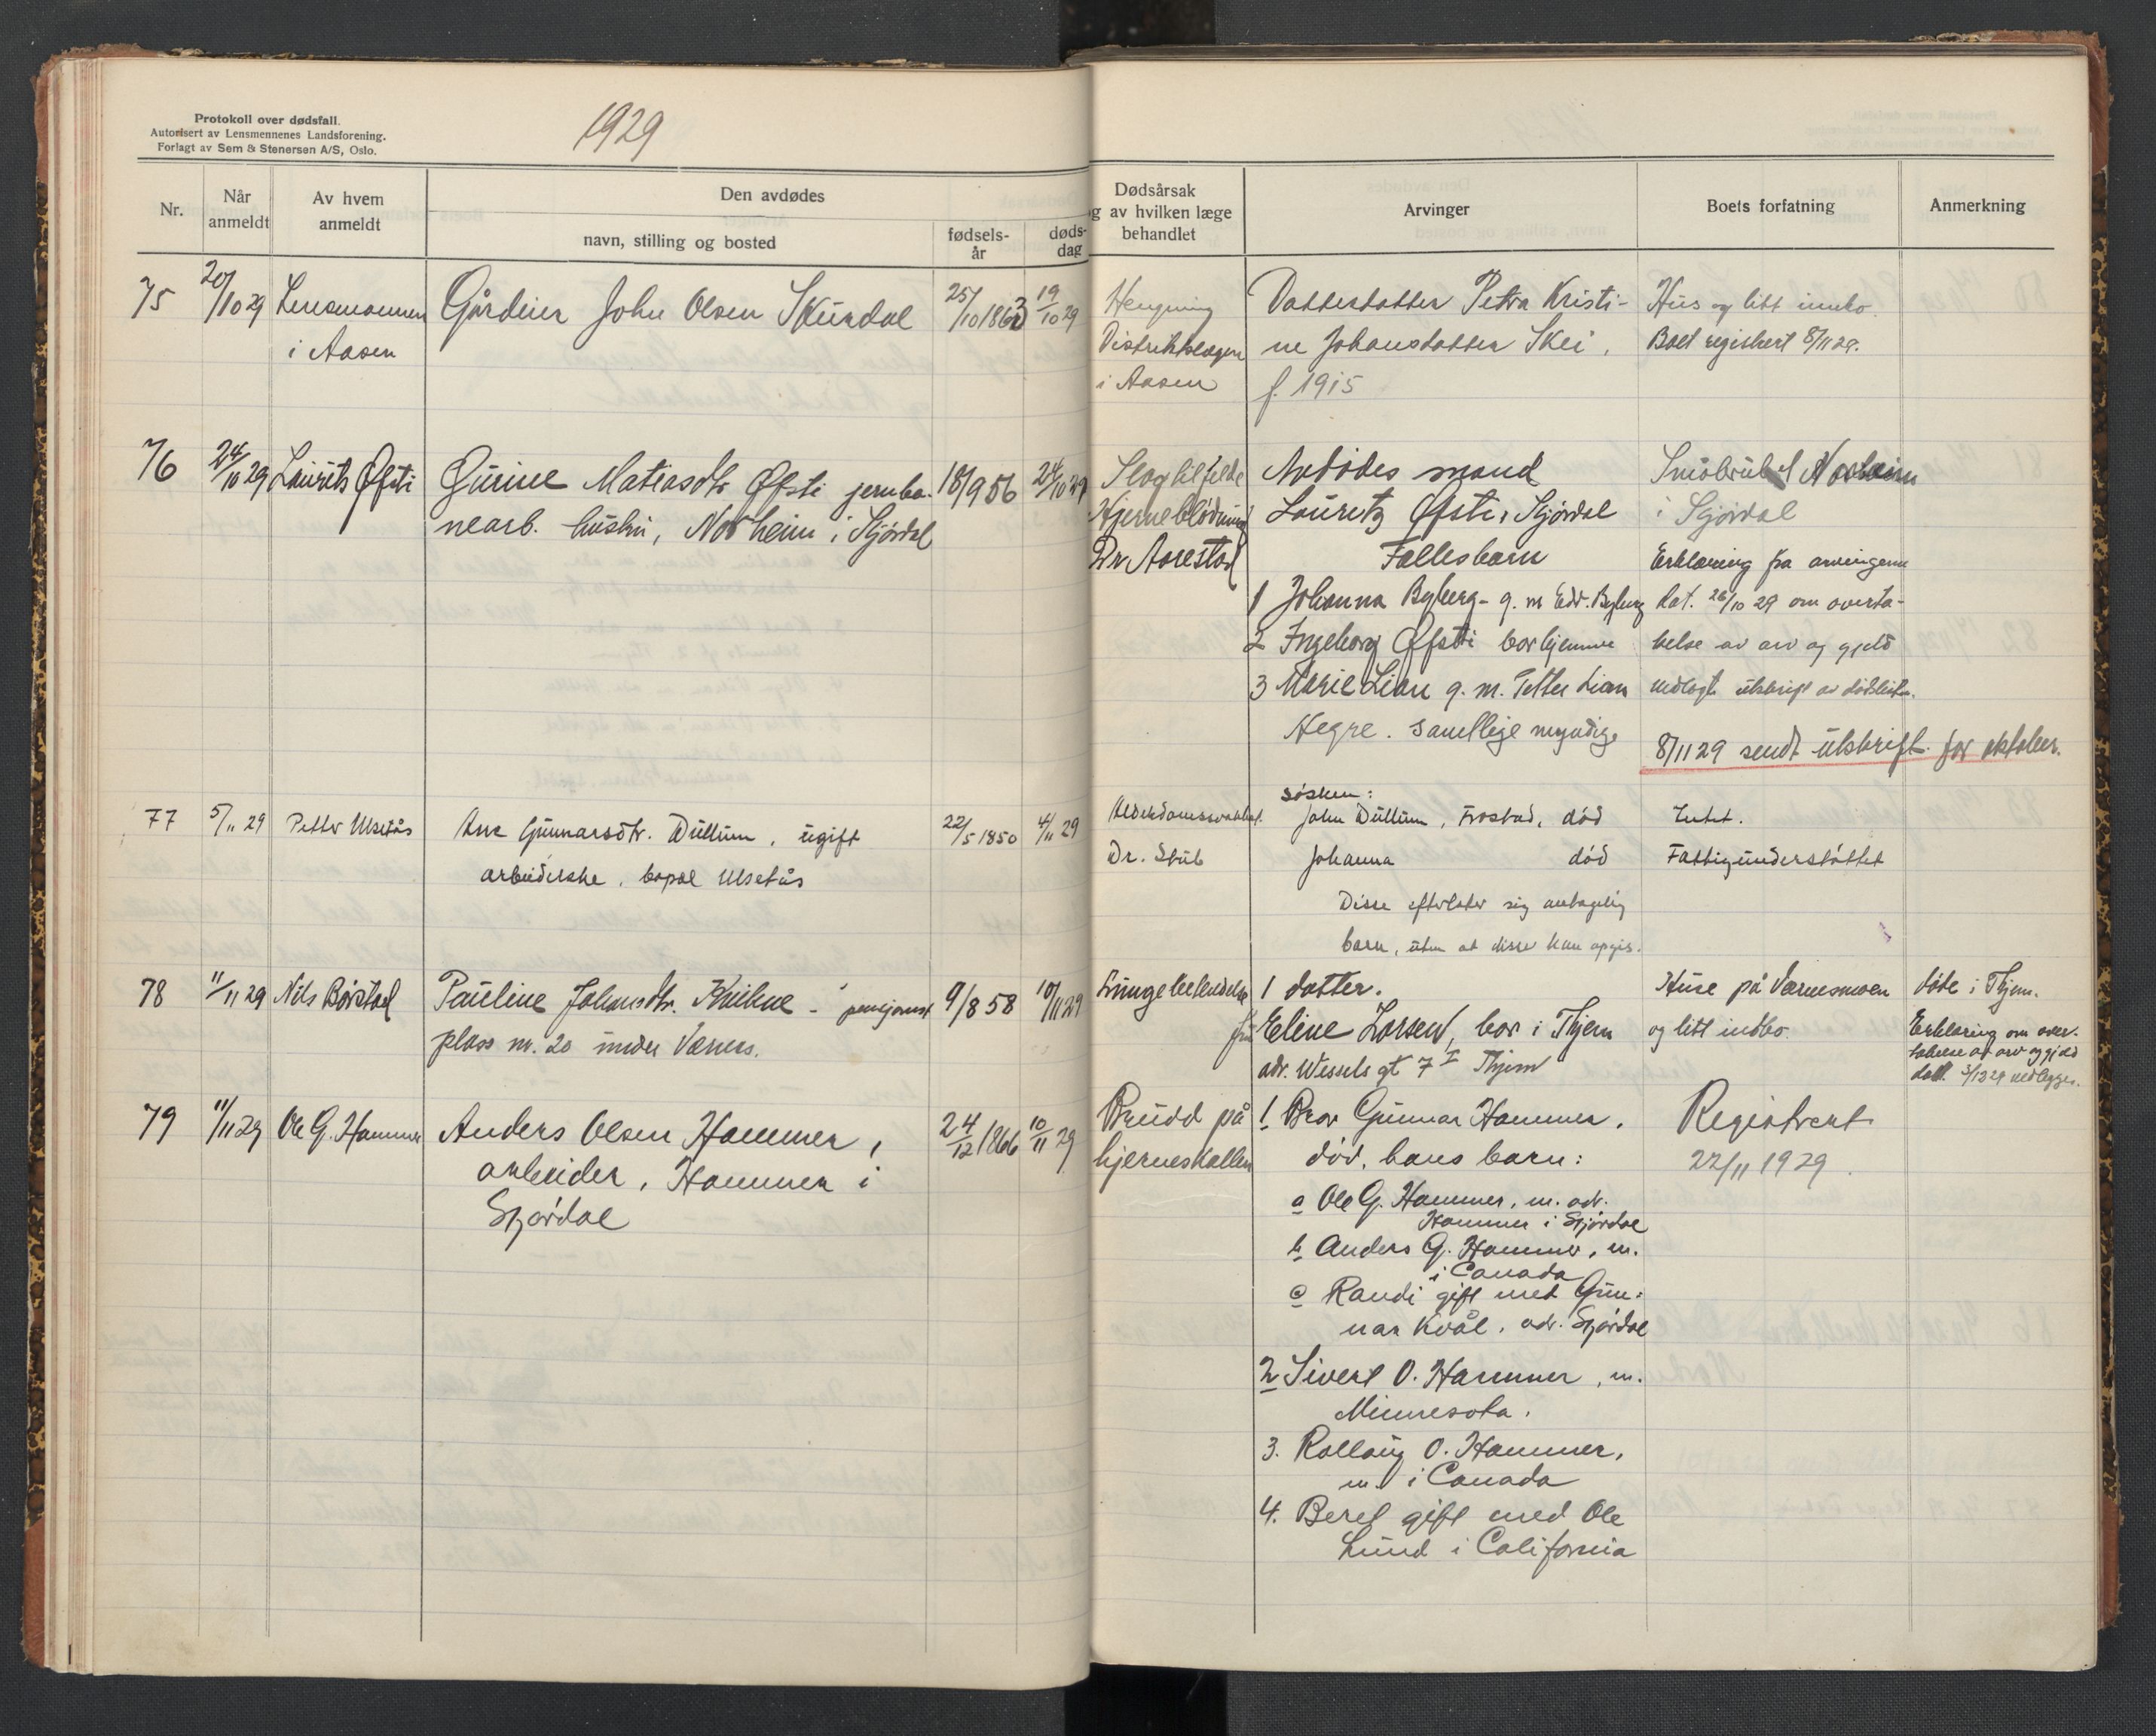 Protokoll over dødsfall.
Autorisert av Lensmennenes Landsforening.
Forlagt av Sem & Stenersen A/S, Oslo.
1929
Nr.
Når anmeldt
Av hvem anmeldt
Den avdødes
navn, stilling og bosted
fødsels-år
døds-dag
Dødsårsak
og av hvilken læge
behandlet
Arvinger
Boets forfatning
Anmerkning
75 20/10 29 Lensmannen Gårdeier John Olsen Skundal 25/10 1863 19/10 29
i Aasen
Hengning
Distriktslægen
i Aasen
Datterdatter Petra Kristi-
ne Johansdatter Skei,
f. 1915
Hus og litt innbo.
Boet registrert 8/11 29.
76 24/10 29 Laurits Øfsti Gurine Matiasdtr Øfsti jernba- 18/9 56 24/10 29
nearb. hustru, Norheim i Stjørdal
Slagtilfelde
Hjerneblødning
Dr Aarestad
Avdødes mand
Lauritz Øfsti, Stjørdal
Fellesbarn
1 Johanna Byberg - g. m Edv. Byberg
2 Ingeborg Øfsti bor hjemme
3 Marie Lian g. m. Petter Lian
Hegre. Samtlige myndige
Småbruket Norheim
i Stjørdal
Erklæring fra arvingerne
dat. 26/10 29 om overta-
kelse av arv og gjeld
vedlagt utskrift av dødslisten.
8/11 29 sendt utskrift for oktober.
77 5/11 29 Petter Ulsetås Ane Gunnarsdtr. Dullum, ugift 22/5 1850 4/11 29
arbeiderske, bopæl Ulsetås
Alderdomssvakhet.
Dr. Stub
søsken:
John Dullum, Frostad, død
Johanna død
Disse efterlater sig antagelig
barn, uten at disse kan opgis.
Intet.
Fattigunderstøttet
78 11/11 29 Nils Børstad Pauline Johansdtr. - pensjonist 9/8 58 10/11 29
plass nr. 20 under Værnes.
Lungebetendelse
1 datter.
fru Eline Larsen, bor i Thjem
adr. Wessels gt 7 I Thjem
Huse på Værnesmoen
og litt indbo.
døde i Thjem.
Erklæring om over-
takelse av arv og gjeld
dat. 3/12 29 vedlegges.
79 11/11 29 Ole G. Hammer Anders Olsen Hammer, 24/12 1866 10/11 29
arbeider, Hammer i
Stjørdal
Brudd på
hjerneskallen
1 Bror Gunnar Hammer,
død, hans barn:
a Ole G. Hammer, m. adr.
Hammer i Stjørdal
b Anders G. Hammer, m.
i Canada
c Randi gift med Gun-
nar Kvål, adr. Stjørdal
2 Sivert O. Hammer, m.
Minnesota.
3. Rollaug O. Hammer,
m. i Canada
4. Beret gift med Ole
Lund i California
Registrert
22/11 1929.